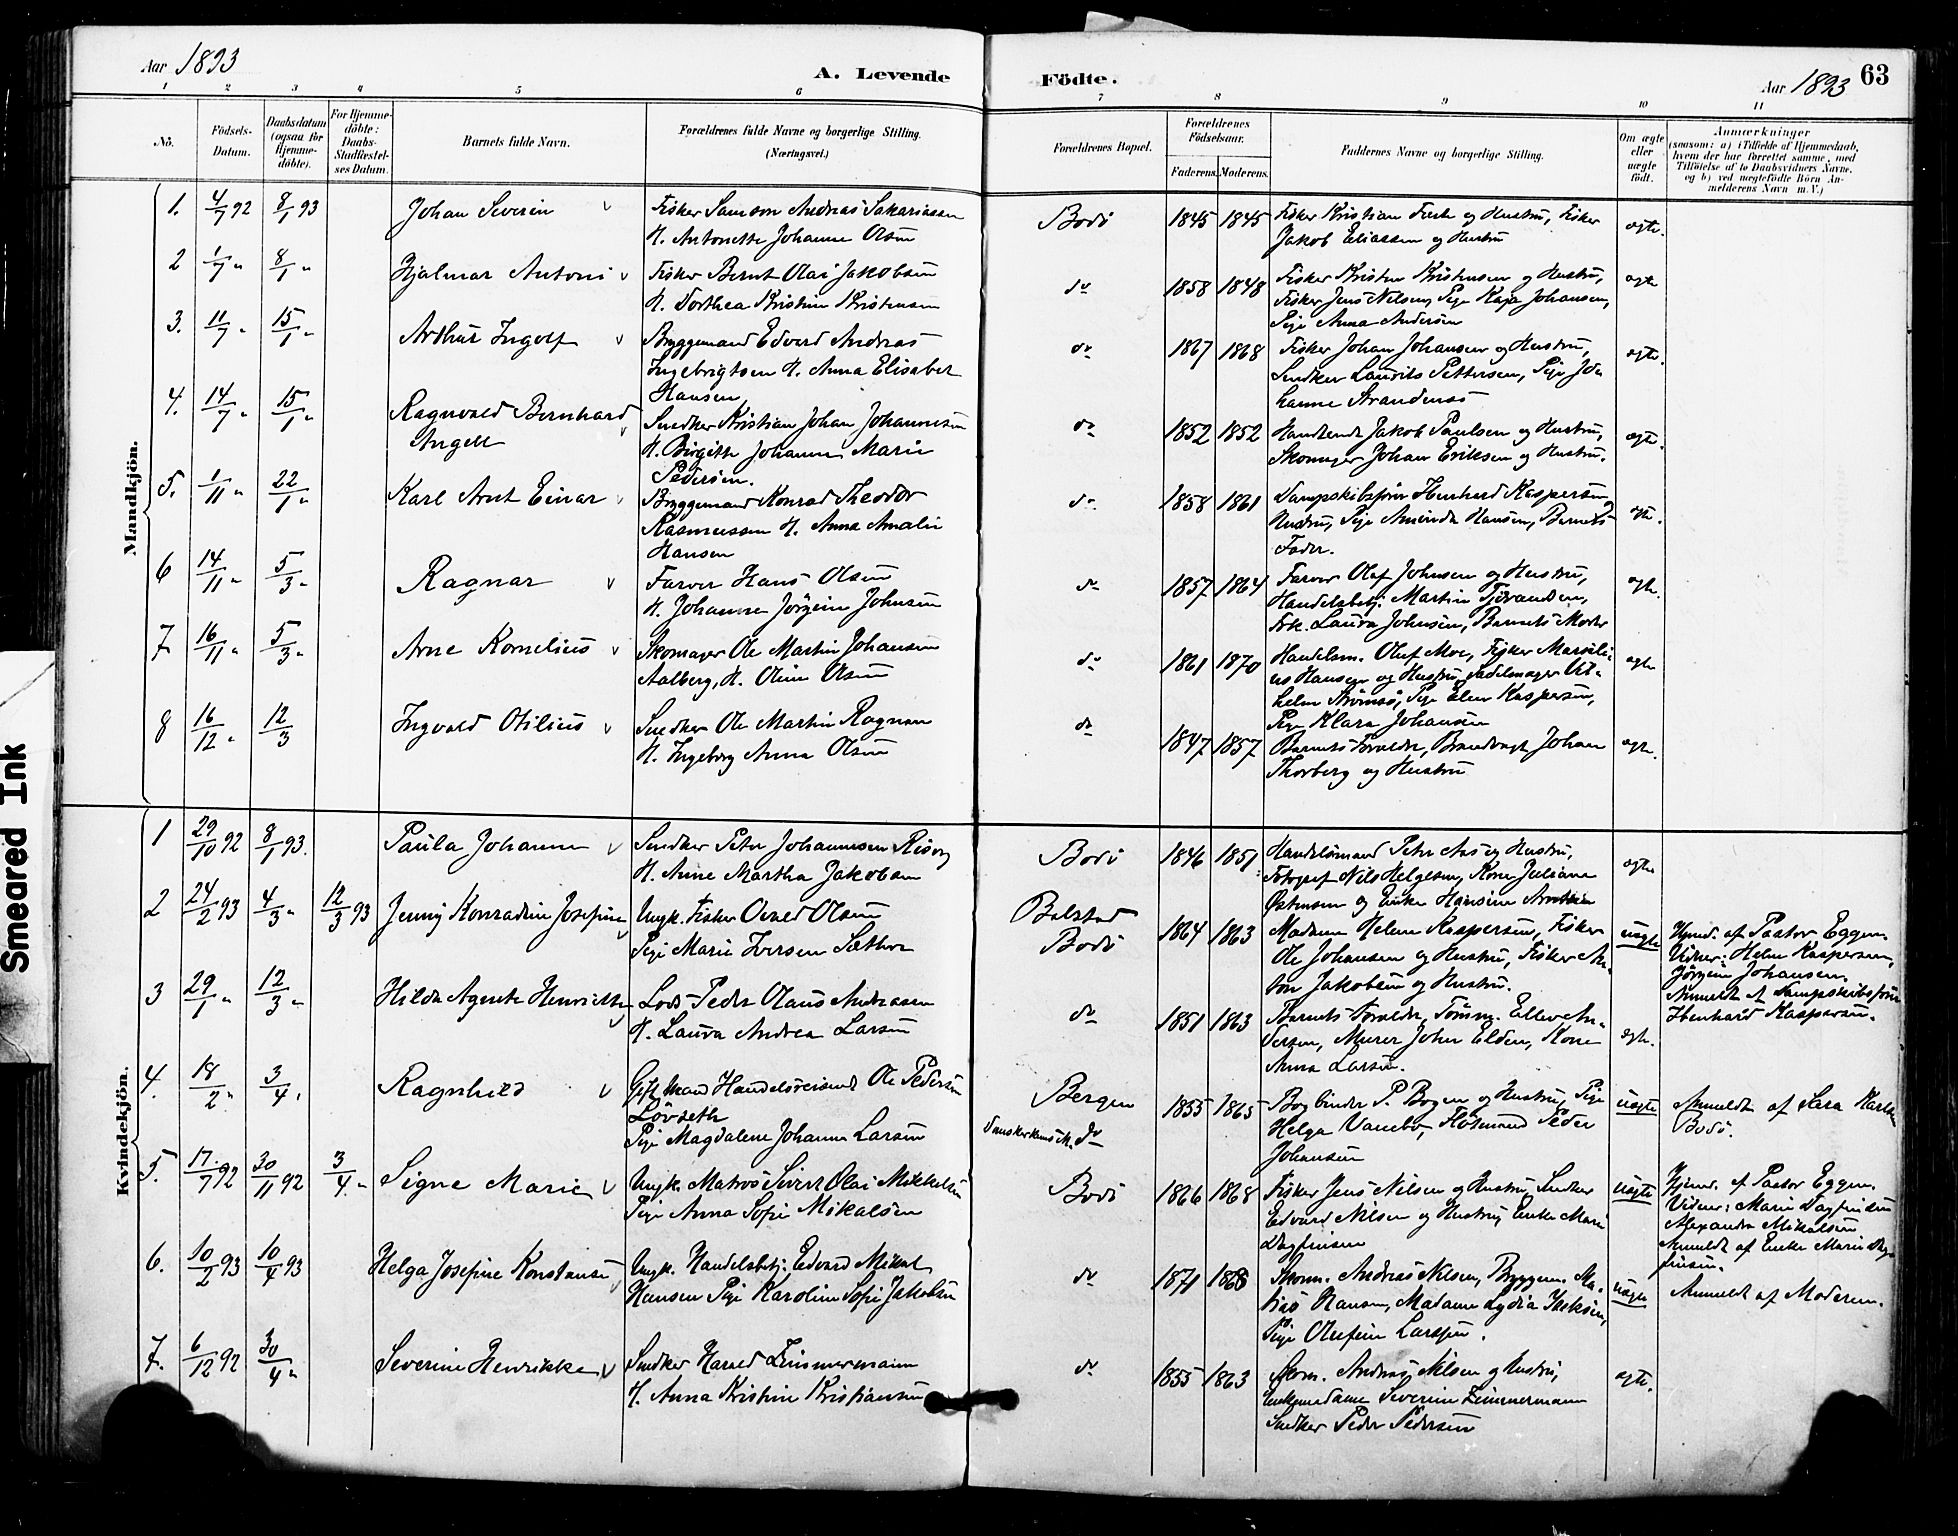 Aar 1893
A. Levende
Födte.
Aar 1893
63
1 2 3 4 5 6 7 8 9 10 11
No.
Födsels-
Datum.
Daabsdatum
(ogsaa for
Hjemme-
döbte).
For Hjemme-
döbte:
Daabs-
Stadfæstel-
ses Datum.
Barnets fulde Navn.
Forældrenes fulde Navne og borgerlige Stilling.
(Næringsvei.)
Forældrenes Bopæl.
Forældrenes
Födselsaar.
Faderens. Moderens.
Faddernes Navne og borgerlige Stilling.
Om ægte
eller
uægte
födt.
Anmærkninger
(saasom: a) i Tilfælde af Hjemmedaab,
hvem der har forrettet samme, med
Tilföielse af to Daabsvidners Navne.
og b) ved uægtefödte Börn An-
melderens Navn m. V.)
Mandkjön.
1. 4/7 92 8/1 93 Johan Severin Fisker Samson Andreas Sakariassen
H. Antonette Johanne Olsen
Bodö 1845 1845 Fisker Kristian og Hustru, Fisker
Jakob Eliassen og Hustru
ægte.
2 1/7 " 8/1 " Hjalmar Antoni Fisker Bernt Olai Jakobsen
H. Dorthea Kristine Kristensen
do 1858 1848 Fisker Kristen Kristensen og Hustru,
Fisker Jens Nilsen, Pige Kaja Johansen,
Pige Anna Andersen
ægte
3. 11/7 " 15/1 " Arthur Ingolf Bryggemand Edvard Andreas
Ingebrigtsen H. Anna Elisabet
Hansen
do 1867 1868 Fisker Johan Johansen og Hustru,
Snedker Laurits Pettersen, Pige Jo-
hanne Strandenæs
ægte.
4. 14/7 " 15/1 " Ragnvald Bernhard
Angell
Snedker Kristian Johan Johannesen
H. Birgitte Johanne Marie
Pedersen.
do 1852 1852 Jakob Paulsen og Hustru,
Skomager Johan Eriksen og Hustru.
ægte.
5. 1/11 " 22/1 " Karl Arnt Einar Bryggemand Konrad Theodor
Rasmussen H. Anna Amalie
Hansen
do 1858 1861 Dampskibsförer Kaspersen og
Hustru, Pige Aminda Hansen, Barnets
Fader.
ægte.
6 14/11 " 5/3 " Ragnar Farver Hans Olsen
H. Johanne Jörgine Johnsen
do 1857 1864 Farver Olaf Johnsen og Hustru,
Handelsbetj. Martin
Frk. Laura Johnsen, Barnets Moder
ægte.
7. 16/11 " 5/3 " Arne Kornelius Skomager Ole Martin Johansen
Aalberg, H. Oline Olsen
do 1861 1870 Handelsm. Oluf Moe, Fisker Marseli-
us Hansen og Hustru, Sadelmager Vil-
helm Strömsö, Pige Elen Kaspersen,
Pige Klara Johansen
ægte
8 16/12 " 12/3 Ingvald Otilius Snedker Ole Martin Rognan
H. Ingeborg Anna Olsen
do 1847 1857 Barnets Forældre, Brandvagt Johan
Thorberg og Hustru
ægte.
Kvindekjön.
1 29/10 92 8/1 93. Paula Johanne Snedker Peter Johannesen Risøy
H. Anne Martha Jakobsen
Bodö 1846 1851 Handelsmand Peter Aas og Hustru,
Fotograf Nils Helgesen, Kone Juliane
Östensen og Enke Hansine
ægte
2 24/2 93 4/3 " 12/3 93 Jenny Konradine Josefine Ungk. Fisker Osvald Olsen
Pige Marie Iversen Sæther
Balstad
Bodö
1864 1863 Madam Helene Kaspersen, Fisker
Ole Johansen og Hustru, Fisker An-
ton Jakobsen og Hustru.
uægte Hjemd. af Pastor Eggen.
Vidner: Helene Kaspersen,
Jörgine Johansen.
Anmeldt af Dampskibsförer
Kaspersen.
3 29/1 " 12/3 " Hilda Agnete Henriette Lods Peder Olaus Andreassen
H. Laura Andrea Larsen
do 1851 1863 Barnets Forældre, Tömm. An-
dersen, Murer Johan Elden, Kone
Anna Larsen.
ægte.
4. 18/2 " 3/4 " Ragnhild Gift Mand Handelsreisende Ole Pedersen
Lövseth
Pige Magdalene Johanne Larsen
Bergen
do
1855 1865 Bogbinder P. Bogen og Hustru, Pige
Helga Vanebo, Peder
Johansen
uægte Anmeldt af Sara Karlsen
Bodö.
5. 17/7 92 30/11 92 3/4 " Signe Marie Ungk. Matros Sivert Olai Mikkelsen
Pige Anna Sofie Mikalsen
Bodö 1866 1868 Fisker Jens Nilsen og Hustru, Snedker
Edvard Nilsen og Hustru, Enke Marie
Dagfinsen
uægte Hjemd. af Pastor Eggen.
Vidner: Marie Dagfinsen
Alexandra Mikalsen
Anmeldt af Enke Marie Dag-
finsen.
6. 10/2 93 10/4 93 Helga Josefine Konstanse Ungk. Handelsbetj. Edvard Mikal
Hansen Pige Karoline Sofie Jakobsen
do 1871 1868 Skom. Andreas Nilsen, Bryggem. Ma-
tias Hansen, Madame Lydia Isaksen,
Pige Olufine Larssen.
uægte Anmeldt af Moderen.
7. 6/12 92 30/4 " Severine Henrikke Snedker Harald Zimmermann
H. Anna Kristine Kristiansen
do 1855 1863 Skom. Andreas Nilsen og Hustru,
Enkemadame Severine Zimmermann
Snedker Peder Pedersen
ægte.
Smeared Ink